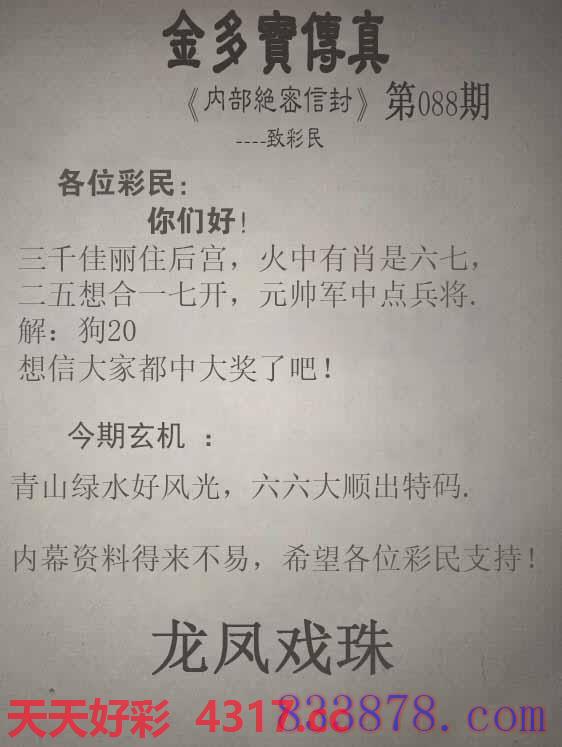 金多寶傳真
《内部絕密信封》第088期
----致彩民
各位彩民：
你们好！
三千佳丽住后宫，火中有肖是六七，
二五想合一七开，元帅军中点兵将.
解：狗20
想信大家都中大奖了吧！
今期玄机 ：
青山绿水好风光，六六大顺出特码.
内幕资料得来不易，希望各位彩民支持！
龙凤戏珠
天天好彩 4317.cc
833878.com